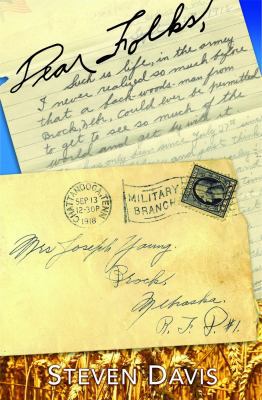 Dear Folks,
Such is life, in the army
I never realized so much before
that a back-woods-man from
Brock, Neb. could ever be permitted
to get to see so much of the
world and get by with it
has only been since July 27th since
CHATTANOOGA, TENN.
SEP 13
12-30P
1918
MILITARY
BRANCH
Mrs Joseph Young.
Brock,
Nebraska.
R. F. D. #1.
STEVEN DAVIS